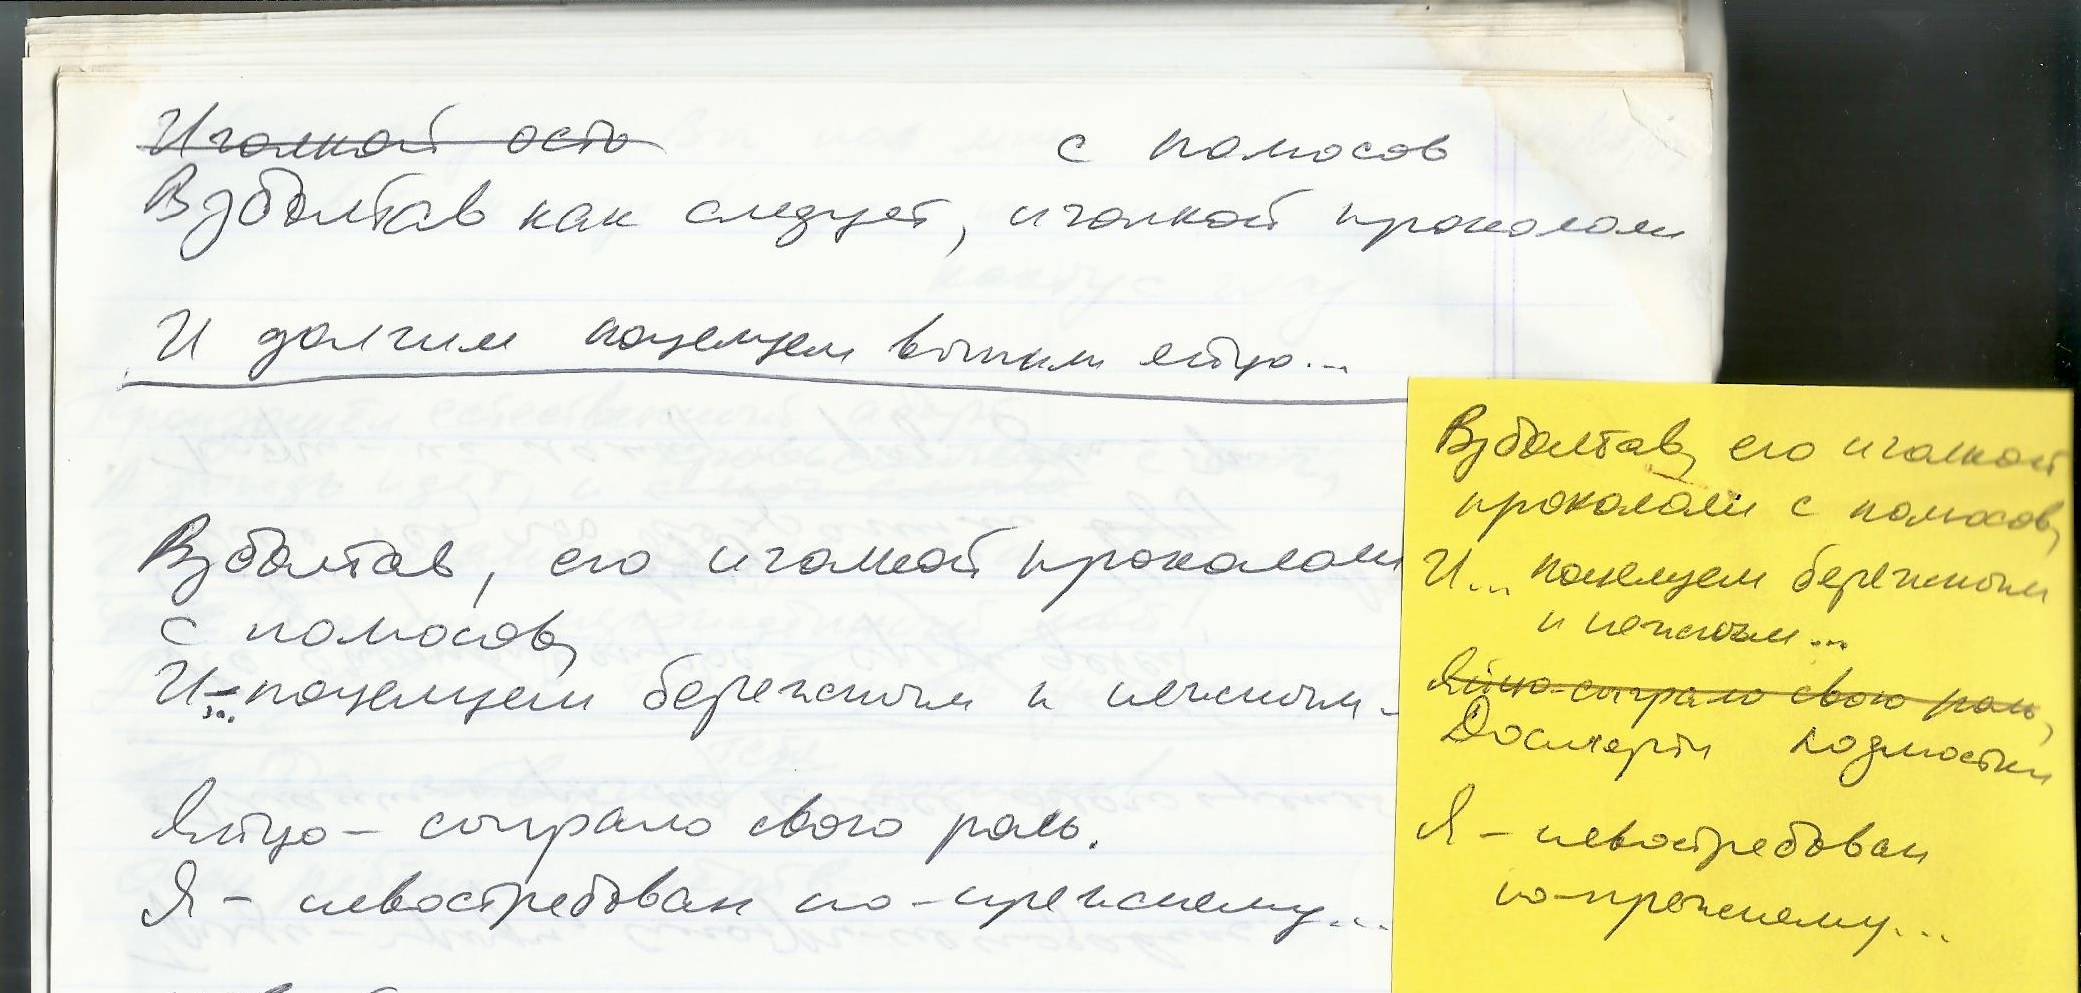 Иголкой ость
с полюсов
Взболтав как следует, иголкой прокололи
И долгим поцелуем выпили яйцо...
Взболтав, его иголкой прокололи
с полюсов,
И поцелуем бережным и нежным -
Яйцо - сыграло свою роль.
Я - невостребован по-прежнему...
Взболтав, его иголкой
прокололи с полюсов,
И... поцелуем бережным
и нежным...
Яйцо сыграло свою роль,
Досмерти
Я - невостребован
по-прежнему...